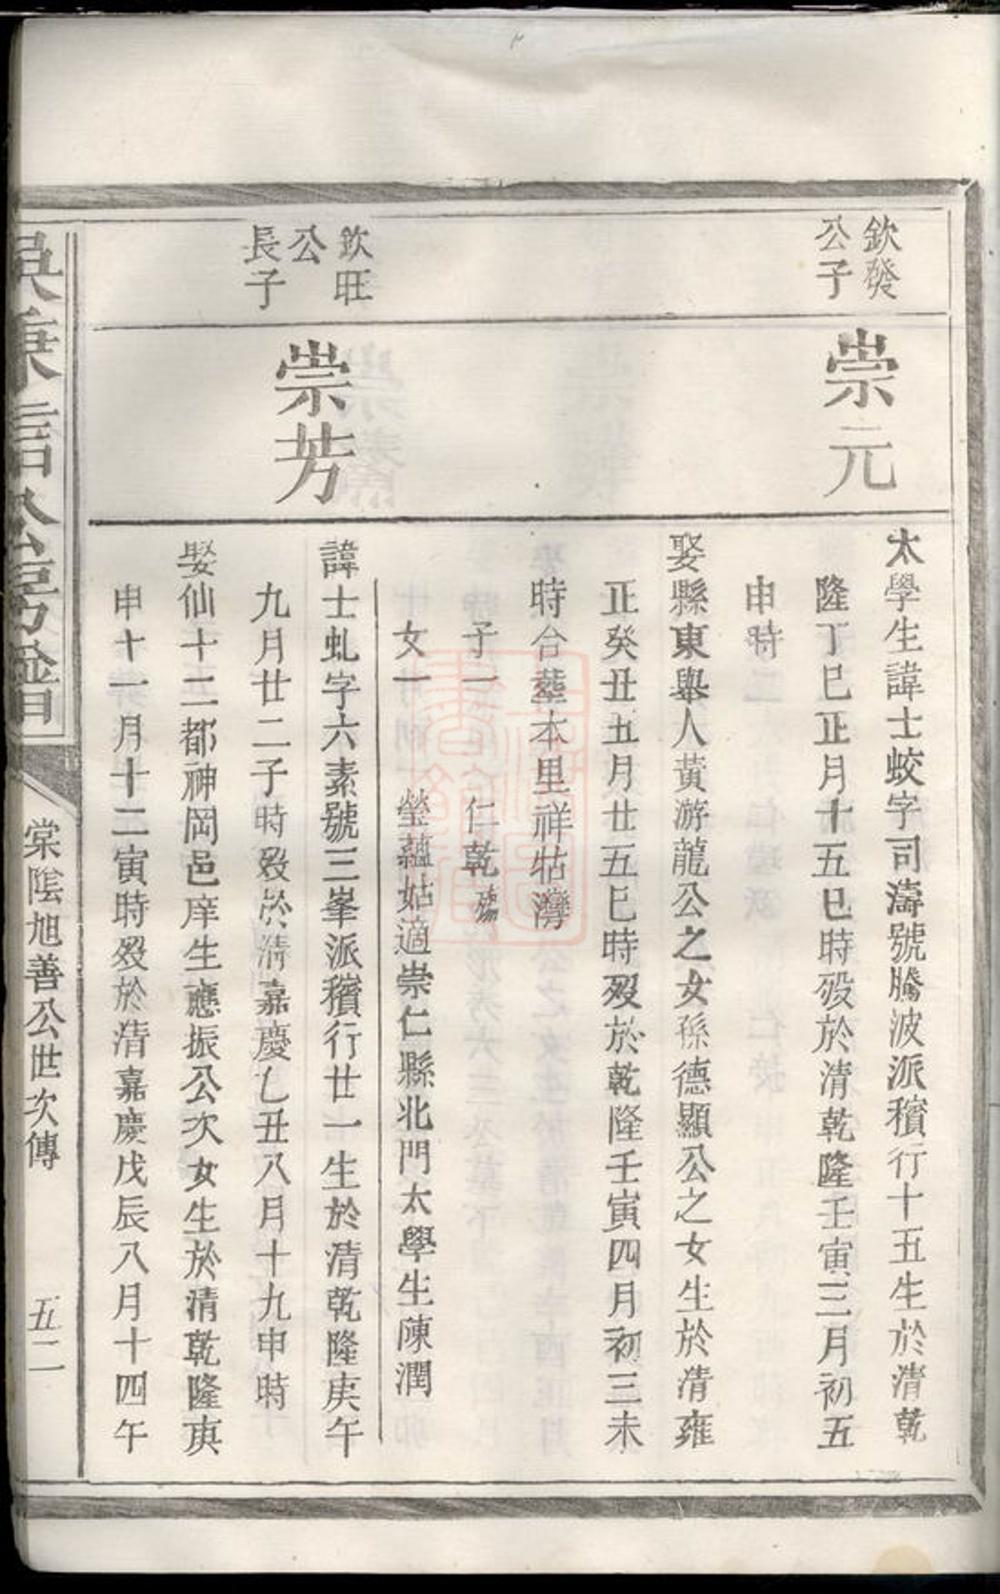 欽發
公子
崇元
太學生諱士蛟字司濤號騰波派穦行十五生於清乾
隆丁巳正月十五巳時殁於清乾隆壬寅三月初五
申時
娶縣東舉人黃游龍公之女孫德顯公之女生於清雍
正癸丑五月廿五巳時歿於乾隆壬寅四月初三未
時合葬本里祥牯灣
子一 仁乾殤
女一 瑩蘊姑適崇仁縣北門太學生陳潤
欽旺
公
長子
崇芳
諱士虬字六素號三峯派穦行廿一生於清乾隆庚午
九月廿二子時歿於清嘉慶乙丑八月十九申時
娶仙十二都神岡邑庠生應振公次女生於清乾隆庚
申十一月十二寅時歿於清嘉慶戊辰八月十四午
吳
棠陰旭善公世次傳
五二